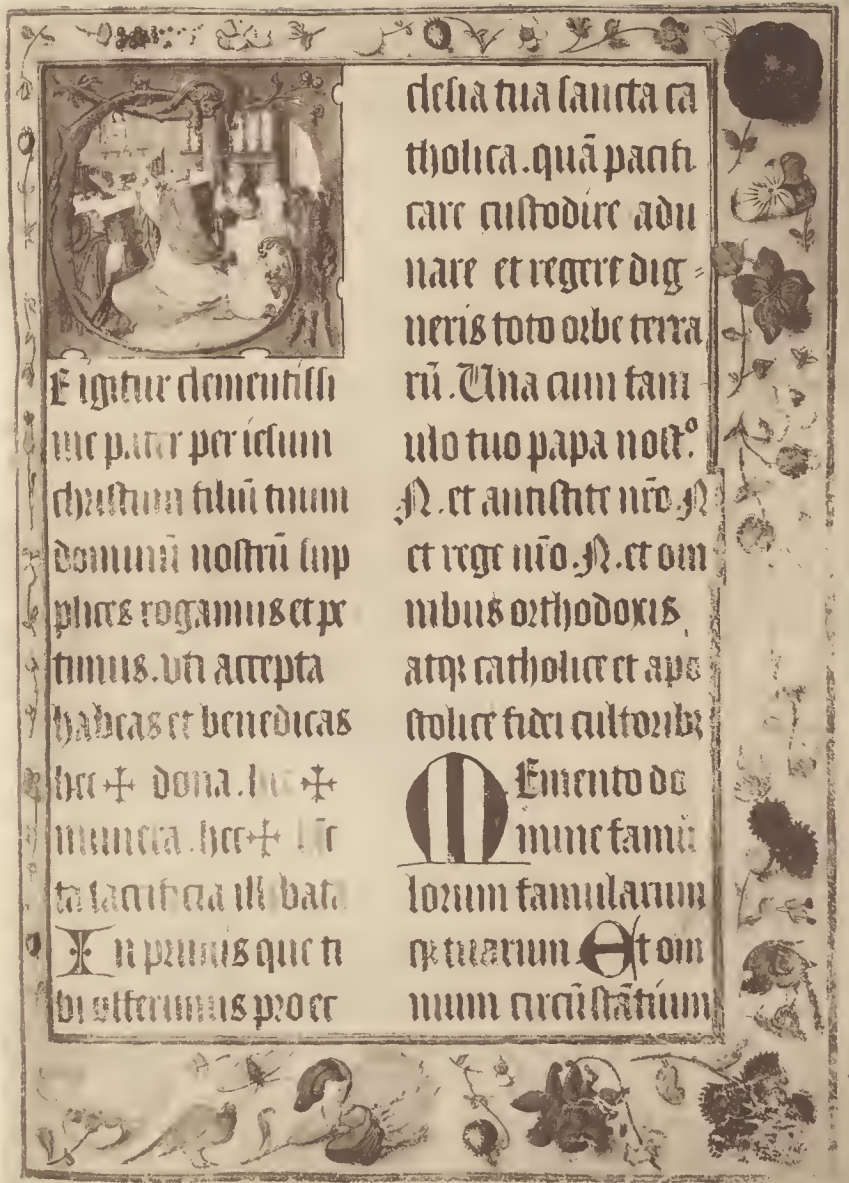 E igitur clementissi
me pater per iesum
christum filiū tuum
dominū nostrū sup
plices rogamus et pe
timus. vti accepta
habeas et benedicas
hec ✠ dona. h ✠
munera. hec ✠
ta sacrificia illibata
In primis que ti
bi offerimus pro ec
clesia tua sancta ca
tholica. quā pacifi
care custodire adu
nare et regere dig
neris toto orbe terra
rū. Una cum fam
ulo tuo papa nostº.
N. et antistite nr̄o. N
et rege nr̄o. N. et om
nibus orthodoxis
atqꝫ catholice et apo
stolice fidei cultoribꝫ
Memento do
mine famu
lorum famularum
qꝫ tuarum Et om
nium circūstātium